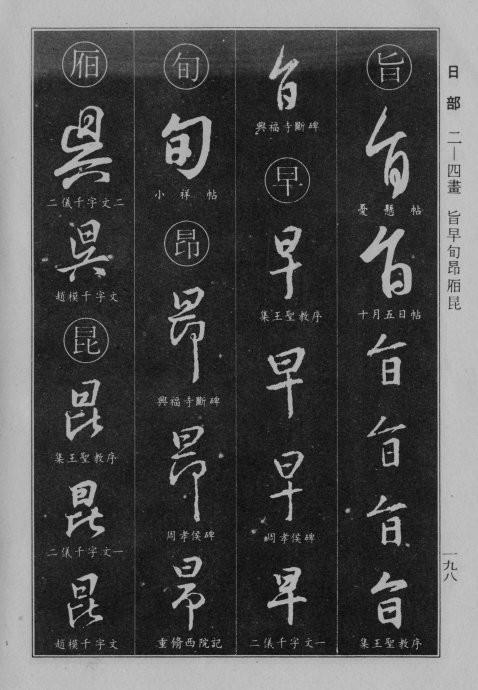 日部 二—四畫 旨早旬昂厢昆
一九八
旨
旨
憂懸帖
旨
十月五日帖
旨
旨
旨
旨
集王聖教序
旨
興福寺斷碑
早
早
集王聖教序
早
早
周孝侯碑
早
二儀千字文一
旬
旬
小祥帖
昂
昂
興福寺斷碑
昂
周孝侯碑
昂
重脩西院記
二儀千字文二
趙模千字文
昆
昆
集王聖教序
昆
二儀千字文一
昆
趙模千字文